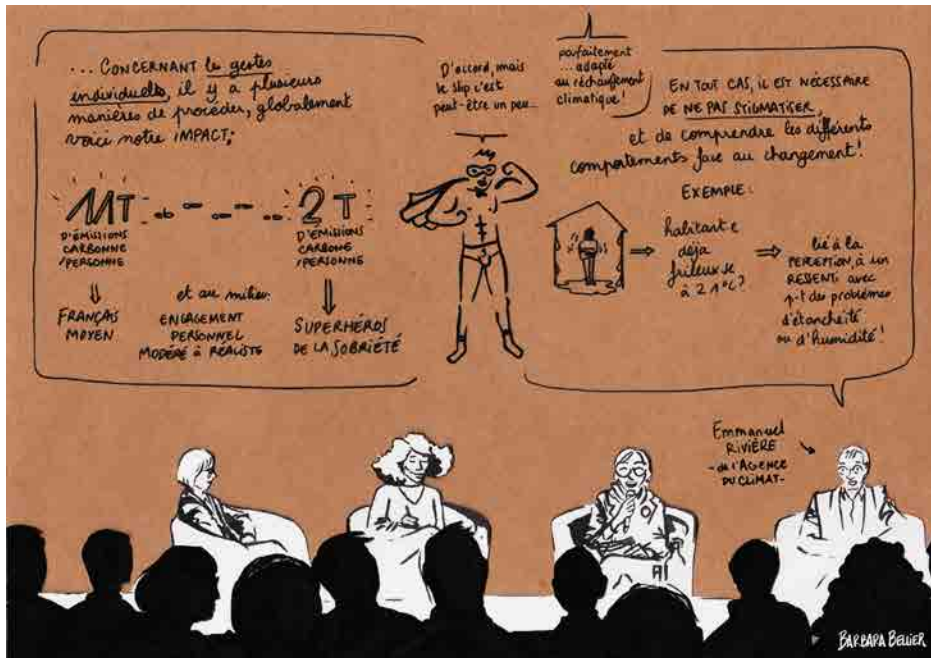 ... CONCERNANT le gestes
individuelle, il y a plusieurs
manières de procéder, globalement
voici notre IMPACT:
11T
D'ÉMISSIONS
CARBONNE
/PERSONNE
FRANÇAIS
MOYEN
et au milieu:
ENGAGEMENT
PERSONNEL
MODÉRÉ à RÉALISTE
2T
D'ÉMISSIONS
CARBONE
/PERSONNE
SUPERHÉROS
DE LA SOBRIÉTÉ
D'accord, mais
le slip c'est
peut-être un peu...
parfaitement
... adapté
au réchauffement
climatique!
EN TOUT CAS, IL EST NÉCESSAIRE
DE NE PAS STIGMATISER,
et de comprendre les différents
comportements face au changement!
EXEMPLE:
habitant·e
déjà
frileux·se
à 21°C?
lié à la
PERCEPTION, à un
RESSENTI avec
p-t des problèmes
d'étanchéité
ou d'humidité!
Emmanuel
RIVIÈRE
- de l'AGENCE
DU CLIMAT-
BARBARA BELLIER